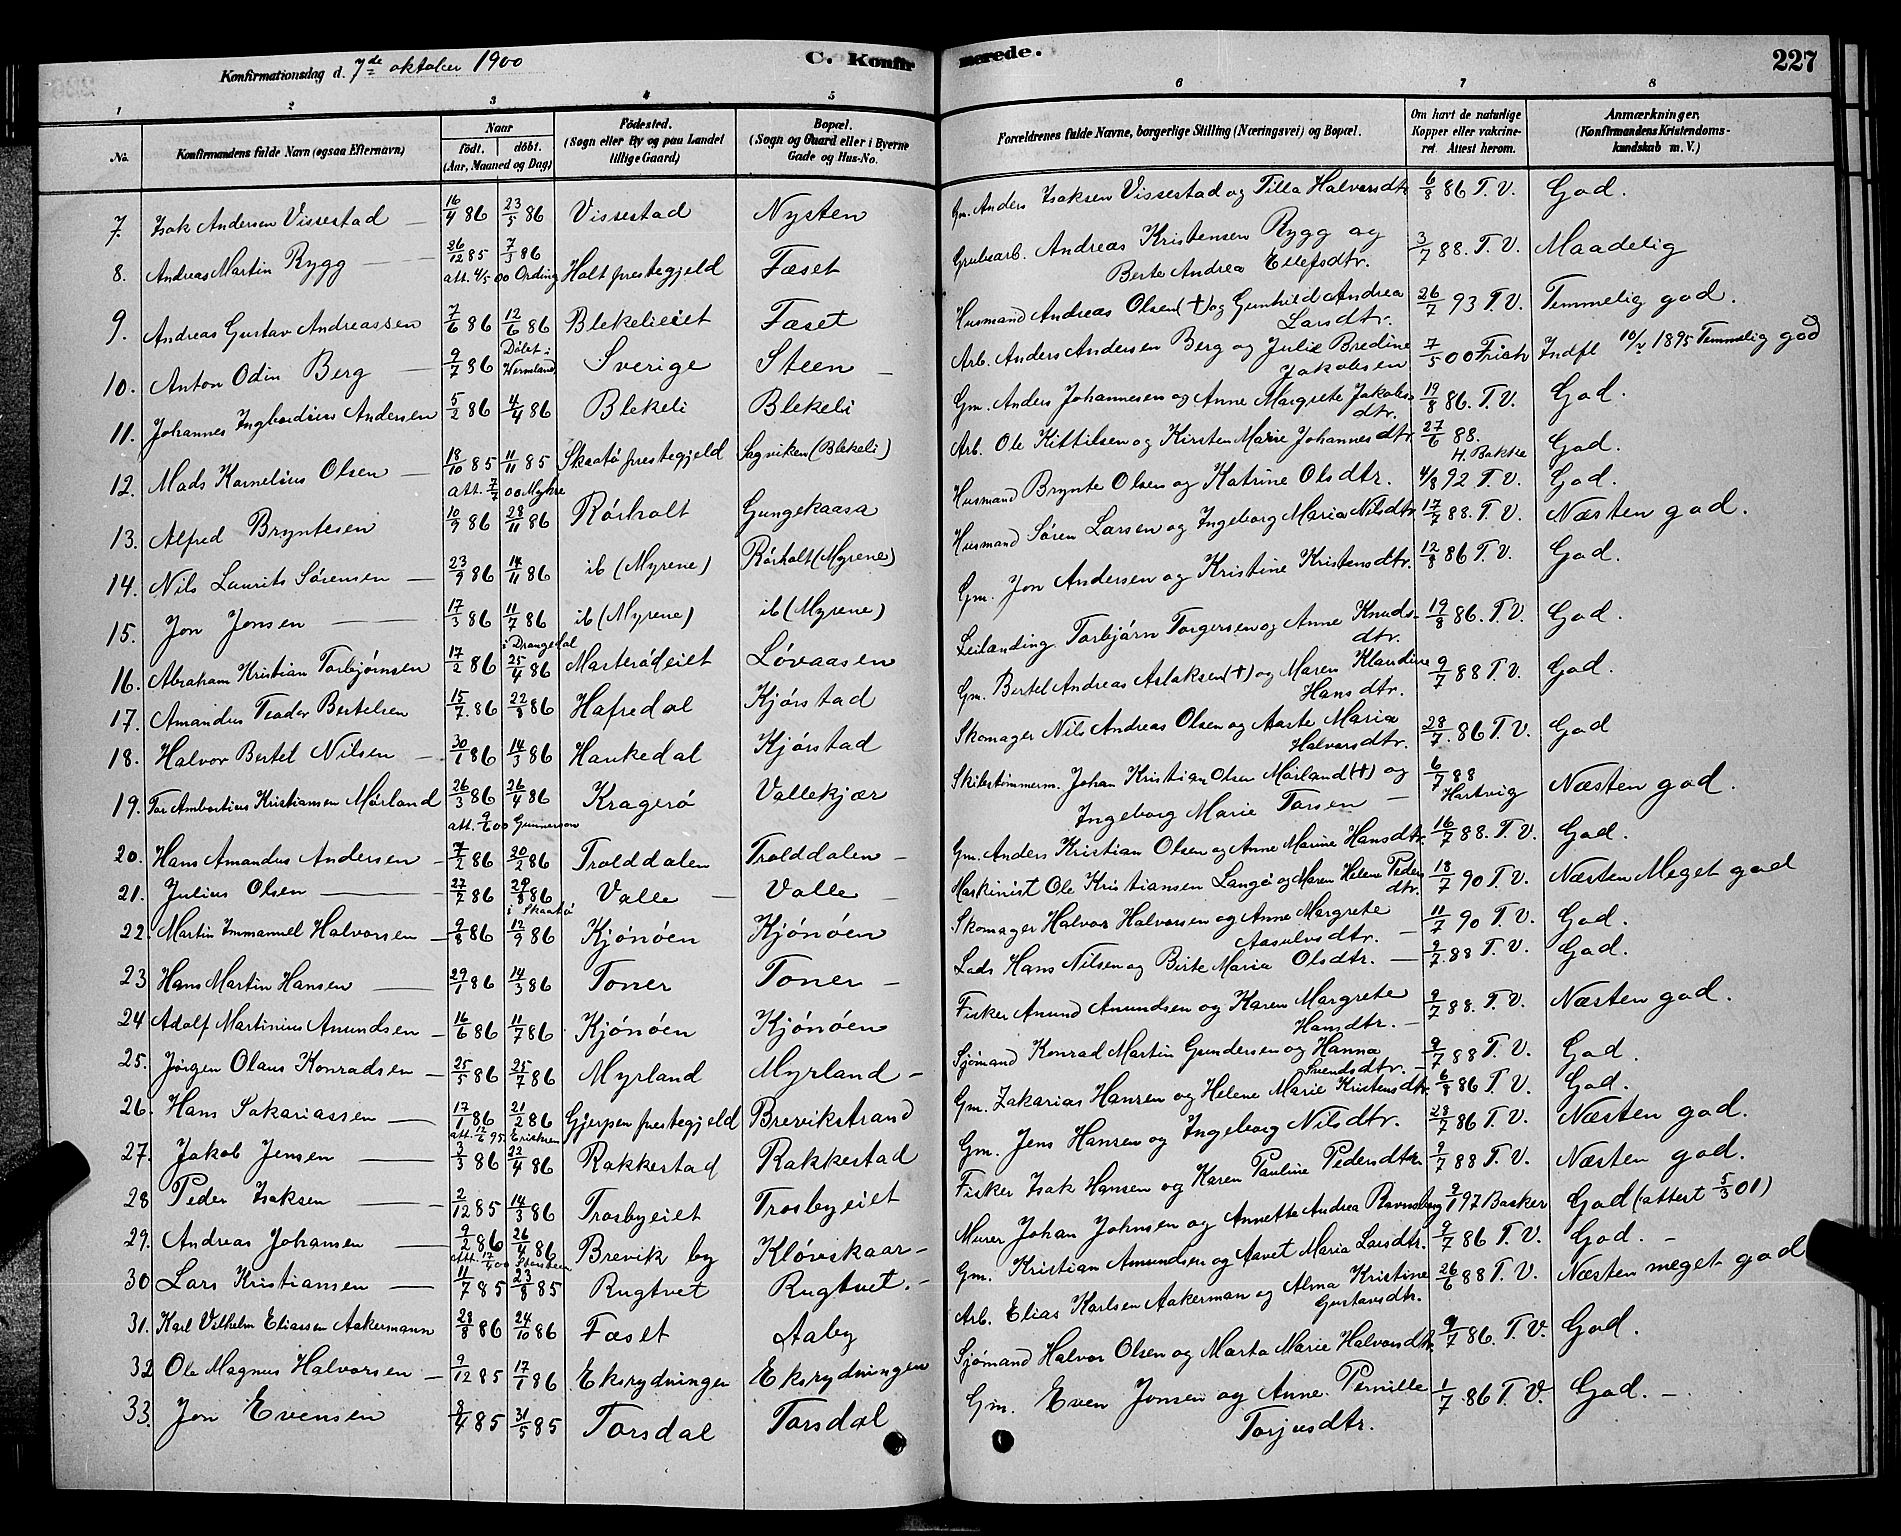 Konfirmationsdag d. 7de oktober 1900 C. Konfirmerede. 227
1 2 3 4 5 6 7 8
No. Konfirmandens fulde Navn (ogsaa Efternavn) Naar født. døbt. (Aar, Maaned og Dag) Fødested. (Sogn eller By og paa Landet tillige Gaard) Bopæl. (Sogn og Gaard eller i Byerne Gade og Hus-No. Forældrenes fulde Navne, borgerlige Stilling (Næringsvei) og Bopæl. Om havt de naturlige Kopper eller vakcineret. Attest herom. Anmærkninger. (Konfirmandens Kristendomskundskab m. V.)
7. Isak Andersen Vissestad — 16/4 86 23/5 86 Vissestad Nysten Gm. Anders Isaksen Vissestad og Tilla Halvorsdtr 6/8 86 T. V. God.
8. Andreas Martin Rygg — 26/12 85 7/3 86 att. 4/5 00 Ording Holt prestegjeld Fæset Grubearb. Andreas Kristensen Rygg og Berte Andrea Ellefsdtr. 3/7 88. T. V. Maadelig
9. Andreas Gustav Andreassen 7/6 86 12/6 86 Blekelieiet Fæset Husmand Andreas Olsen (†) og Gunhild Andrea Larsdtr. 26/7 93 T. V. Temmelig god.
10. Anton Odin Berg — 9/7 86 Døbt i Vermland Sverige Steen — Arb. Anders Andersen Berg og Julie Bredine Jakobsen 7/5 00 Frich Indfl 10/2 1895 Temmelig god
11. Johannes Ingbordius Andersen 5/2 86 4/4 86 Blekeli Blekeli Gm. Anders Johannesen og Anne Margrete Jakobsdtr. 19/8 86. T. V. God.
12. Mads Kornelius Olsen — 18/10 85 11/11 85 att. 7/7 00 Myhre Skaatø prestegjeld Sagviken (Blekeli) Arb. Ole Kittilsen og Kirsten Marie Johannesdtr. 27/6 88. H. Bakke God.
13. Alfred Bryntesen 10/9 86 28/11 86 Rørholt Gungekaasa Husmand Brynte Olsen og Katrine Olsdtr. 4/8 92 T. V. God.
14. Nils Laurits Sørensen — 23/9 86 14/11 86 ib (Myrene) Rørholt (Myrene) Husmand Søren Larsen og Ingeborg Maria Nilsdtr 17/7 88. T. V. Næsten god.
15. Jon Jonsen — 17/3 86 11/7 86 ib (Myrene) ib (Myrene) Gm. Jon Andersen og Kristine Kristensdtr. 12/8 86 T. V. God.
16. Abraham Kristian Torbjørnsen 17/2 86 i Drangedal 25/4 86 Marterødeiet Løvaasen Leilending Torbjørn Torgersen og Anne Knudsdtr. 19/8 86. T. V. God.
17. Amandus Teodor Bertelsen 15/7. 86 22/8 86 Hafredal Kjørstad Gm. Bertel Andreas Aslaksen (†) og Maren Klaudine Hansdtr. 9/7 88 T. V. God.
18. Halvor Bertel Nilsen — 30/1 86 14/3 86 Haukedal Kjørstad Skomager Nils Andreas Olsen og Aaste Maria Halvorsdtr. 28/7. 86 T. V. God
19. Tor Ambortius Kristiansen Mørland 26/3 86 26/4 86 att. 9/6 00 Gunnerson Kragerø Vallekjær Skibstømmerm. Johan Kristian Olsen Mørland (†) og Ingeborg Marie Torsen — 6/7 88 Hartvig Næsten god.
20. Hans Amandus Andersen — 7/2 86 20/2 86 Trolddalen Trolddalen — Gm. Anders Kristian Olsen og Anne Marine Hansdtr. 16/7 88. T. V. God.
21. Julius Olsen — 27/7 86 29/8 86 i Skaatø Valle — Valle — Maskinist Ole Kristiansen Langø og Maren Helene Pedersdtr. 18/7 90 T. V. Næsten Meget god
22. Martin Immanuel Halvorsen — 9/8 86 12/9 86 Kjønøen Kjønøen Skomager Halvor Halvorsen og Anne Margrete Aasulvsdtr. — 11/7 90 T. V. God.
23 Hans Martin Hansen — 29/1 86 14/3 86 Toner Toner — Lods Hans Nilsen og Birte Maria Olsdtr. — 9/7. 88 T. V. God.
24 Adolf Martinius Anundsen — 16/6 86 11/7 86 Kjønøen Kjønøen Fisker Anund Anundsen og Karen Margrete Hansdtr. — 9/7 88. T. V. Næsten god.
25. Jørgen Olaus Konradsen — 25/5 86 25/7 86 Myrland Myrland — Sjømand Konrad Martin Gundersen og Hanna Svendsdtr. — 9/7 88 T. V. God.
26. Hans Sakariassen — 17/1 86 21/2 86 att. 12/6 95. Eriksen Gjerpen prestegjeld Brevikstrand Gm. Zakarias Hansen og Helene Marie Kristensdtr. 6/8 86 T. V. God.
27. Jakob Jensen — 3/3 86 22/4 86 Rakkestad Rakkestad Gm. Jens Hansen og Ingeborg Nilsdtr. 28/7 86 T. V. Næsten god.
28 Peder Isaksen — 2/12 85 14/3 86 Trosbyeiet Trosbyeiet Fisker Isak Hansen og Karen Pauline Pedersdtr. 9/7 88 T. V. Næsten god.
29. Andreas Johansen — 9/2 86 26/4 86 Brevik by Kløveskaar — Murer Johan Johnsen og Annette Andrea Ravnsborg 9/1 97 Basker God (attert 5/3 01)
30 Lars Kristiansen — 11/7 85 23/8 85 Rugtvet Rugtvet. — Gm. Kristian Amundsen og Aavet Maria Larsdtr. 9/7 86 T. V. God. —
31. Karl Vilhelm Eliassen Aakermann 28/8 86 24/10 86 Fæset Aaby Arb. Elias Karlsen Aakerman og Alma Kristine Gustavsdtr. 26/6 88 T. V. Næsten meget god
32 Ole Magnus Halvorsen — 9/12 85 17/1 86 Eksrydningen Eksrydningen Sjømand Halvor Olsen og Marta Marie Halvorsdtr. 9/7 86. T. V. God.
33. Jon Evensen 8/4 85 31/5 85 Torsdal Torsdal Gm. Even Jonsen og Anne Pernille Torjusdtr. 1/7 86 T. V. God. —